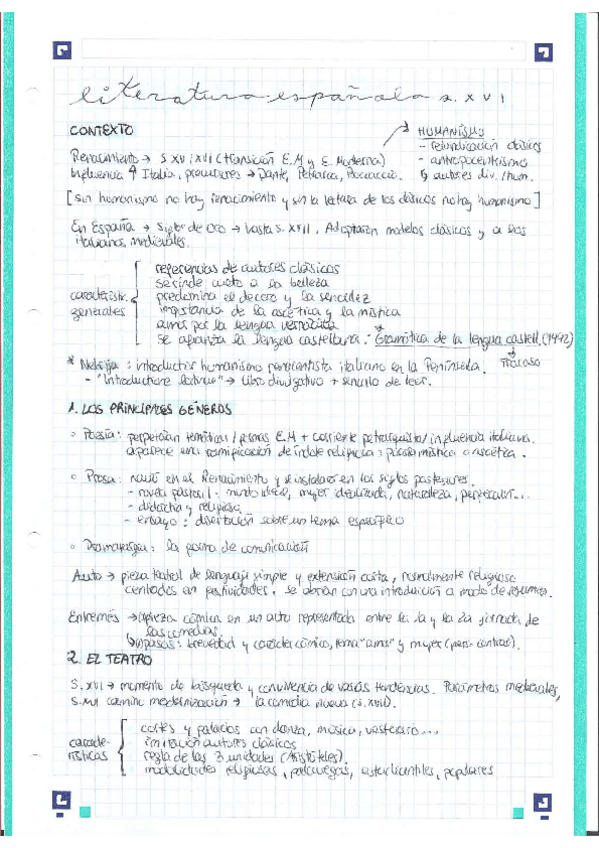 literatura española s. XVI
CONTEXTO
HUMANISMO
- reivindicación clásicos
- antropocentrismo
↳ autores div./hum.
Renacimiento → S. XV y XVI (transición E.M y E. Moderna)
Influencia ↑ Italia, precursores → Dante, Petrarca, Boccaccio.
[sin humanismo no hay renacimiento y sin la lectura de los clásicos no hay humanismo]
En España → Siglo de Oro → hasta s. XVII. Adoptaron modelos clásicos y a los
italianos medievales.
caracterist. generales
referencias de autores clásicos
se rinde culto a la belleza
predomina el decoro y la sencillez
importancia de la ascética y la mística
amor por la lengua vernácula
se afianza la lengua castellana. * Gramática de la lengua castell. (1492)
↓ fracaso
* Nebrija: introductor humanismo renacentista italiano en la Península.
- "Introductiones latinae" → libro divulgativo + sencillo de leer.
1. LOS PRINCIPALES GÉNEROS
◦ Poesía: perpetúan temáticas/formas E.M + corriente petrarquista/influencia italiana.
aparece una ramificación de índole religiosa: poesía mística o ascética.
◦ Prosa: nació en el Renacimiento y se instaló en los siglos posteriores.
- novela pastoril: mundo ideal, mujer idealizada, naturaleza, perfección...
- didáctica y religiosa
- ensayo: disertación sobre un tema específico
◦ Dramaturgia: la forma de comunicación
Auto → pieza teatral de lenguaje simple y extensión corta, normalmente religioso
centrados en festividades. se abrían con una introducción a modo de resumen.
Entremés → pieza cómica en un acto representada entre la 1a y la 2a jornada de
las comedias.
↳ pasos: brevedad y carácter cómico, tema "amor" y mujer
2. EL TEATRO
S. XVI → momento de búsqueda y convivencia de varias tendencias. Parámetros medievales,
S. XVI camino modernización → la comedia nueva (s. XVII).
caracte-
rísticas
cortes y palacios con danza, música, vestuario...
imitación autores clásicos
regla de las 3 unidades (Aristóteles).
modalidades religiosas, palaciegas, estudiantiles, populares